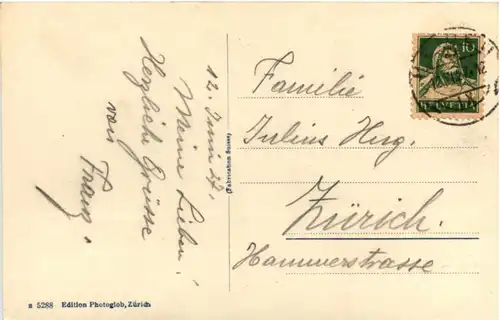 12. Juni 27.
Meine Lieben!
Herzliche Grüsse
von
Franz.
(Fabrication Suisse)
Familie
Julius Hug.
Zürich.
Hammerstrasse
10
HELVETIA
s 5288 Edition Photoglob, Zürich